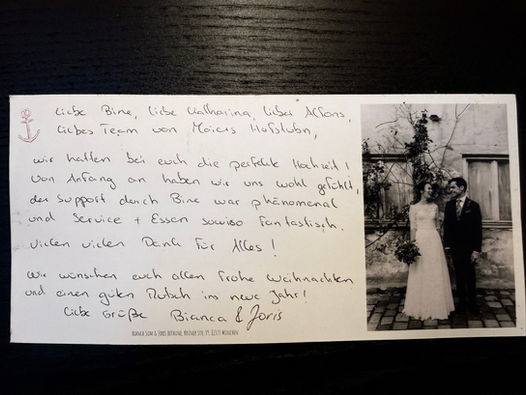 Liebe Bine, liebe Katharina, lieber Alfons,
liebes Team von Maiers Hofstubn,
wir hatten bei euch die perfekte Hochzeit!
Von Anfang an haben wir uns wohl gefühlt,
der Support durch Bine war phänomenal
und Service + Essen sowiso fantastisch.
Vielen vielen Dank für Alles!
Wir wünschen euch allen frohe Weihnachten
und einen guten Rutsch ins neue Jahr!
Liebe Grüße Bianca & Joris
Bianca & Joris München